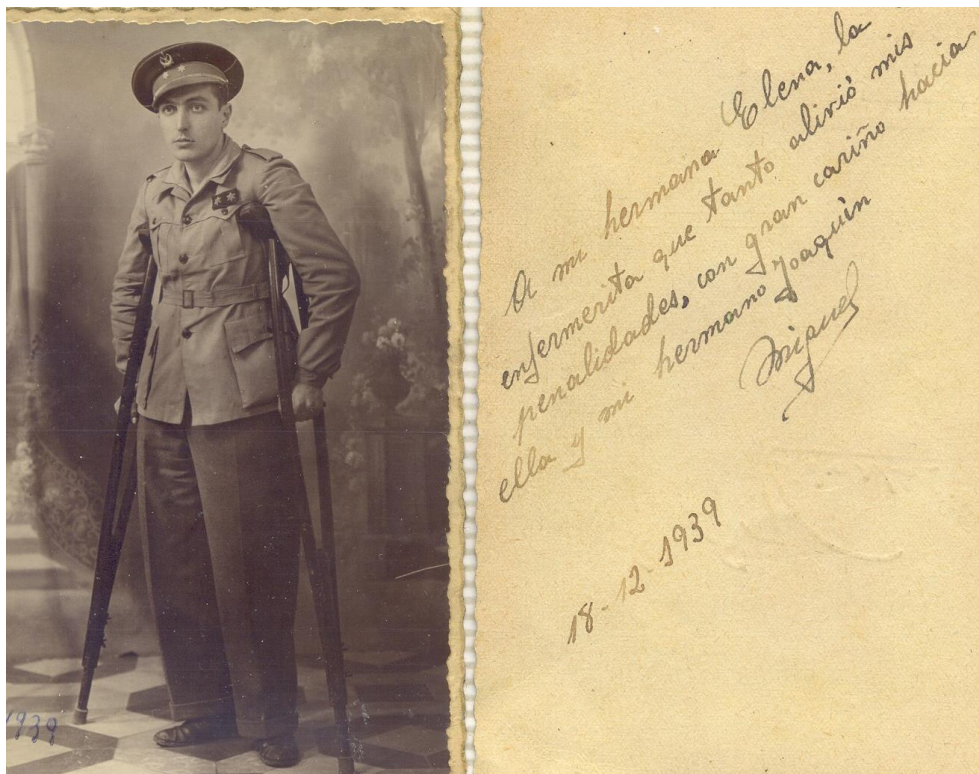 A mi hermana Elena, la
enfermerita que tanto alivió mis
penalidades, con gran cariño hacia
ella y mi hermano Joaquín
Miguel
18-12-1939
1939